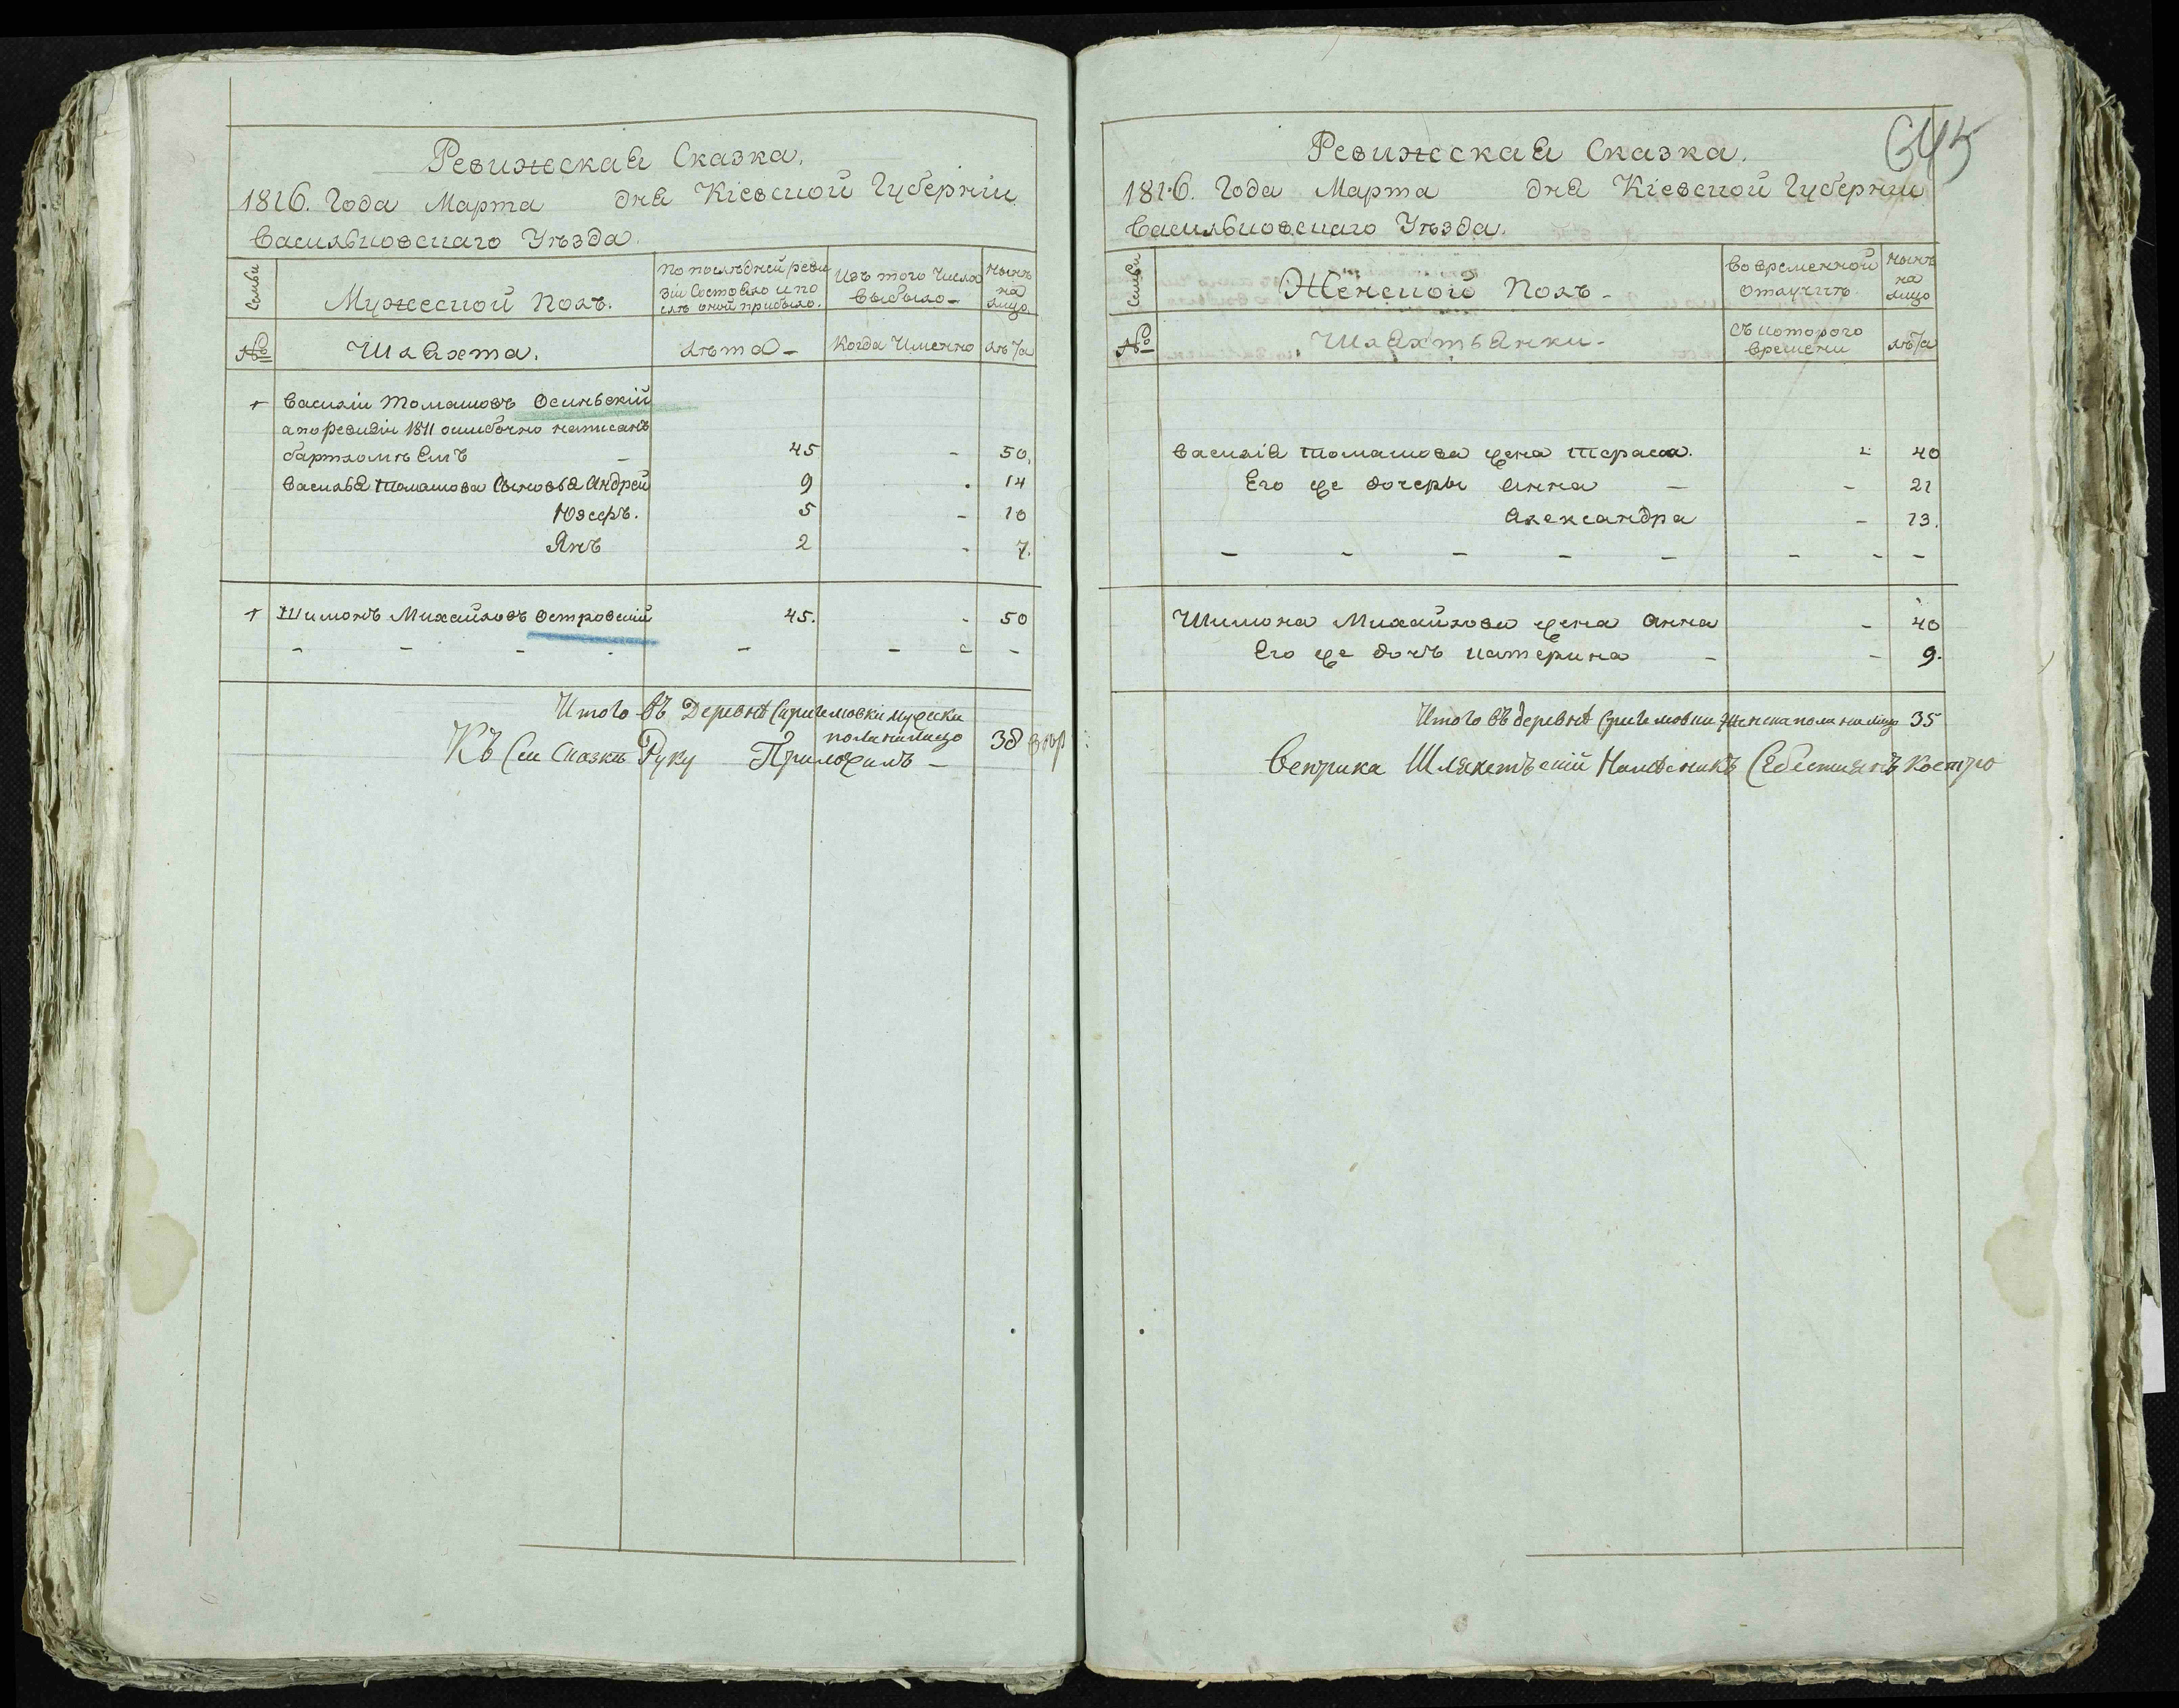 Ревижская Сказка.
1816. Года Марта дня Кіевской Губерніи
Васильковскаго Уѣзда.
Семьи
Мужеской Полъ.
По послѣдней реви
зіи Состояло и по
слѣ оной прибыло.
Изъ того Числа
выбыло
нынѣ
на
лицо
№
Шляхта.
лѣта
Когда Именно
лѣта
+ Василіи Томашовъ Осиньскій
а по ревизіи 1811 ошибочно написанъ
бартломѣемъ 45 - 50.
Василья Томашова Сыновья Андрей 9 - 14
Юзефъ. 5 - 10
Янъ 2 - 7.
+ Шимонъ Михайловъ Островскій 45. - 50
Итого въ Деревнѣ мужска
пола налицо 38
Къ Сей Сказки Руку Приложилъ
645
Ревижская Сказка.
1816. Года Марта дня Кіевской Губерніи
Васильковскаго Уѣзда.
Семьи
Женского Полъ
Во временной
отлучкѣ
нынѣ
на
лицо
№
Шляхтянки
съ которого
времени
лѣта
Василія Томашова жена Тераса. - 40
Его же дочеры Анна - 21
Александра - 13.
Шимона Михайлова жена Анна - 40
Его же дочъ Катерина - 9.
Итого въ деревнѣ женска пола налицо 35
Веприка Шляхетъскій Намѣсникъ Себестиянъ Костро